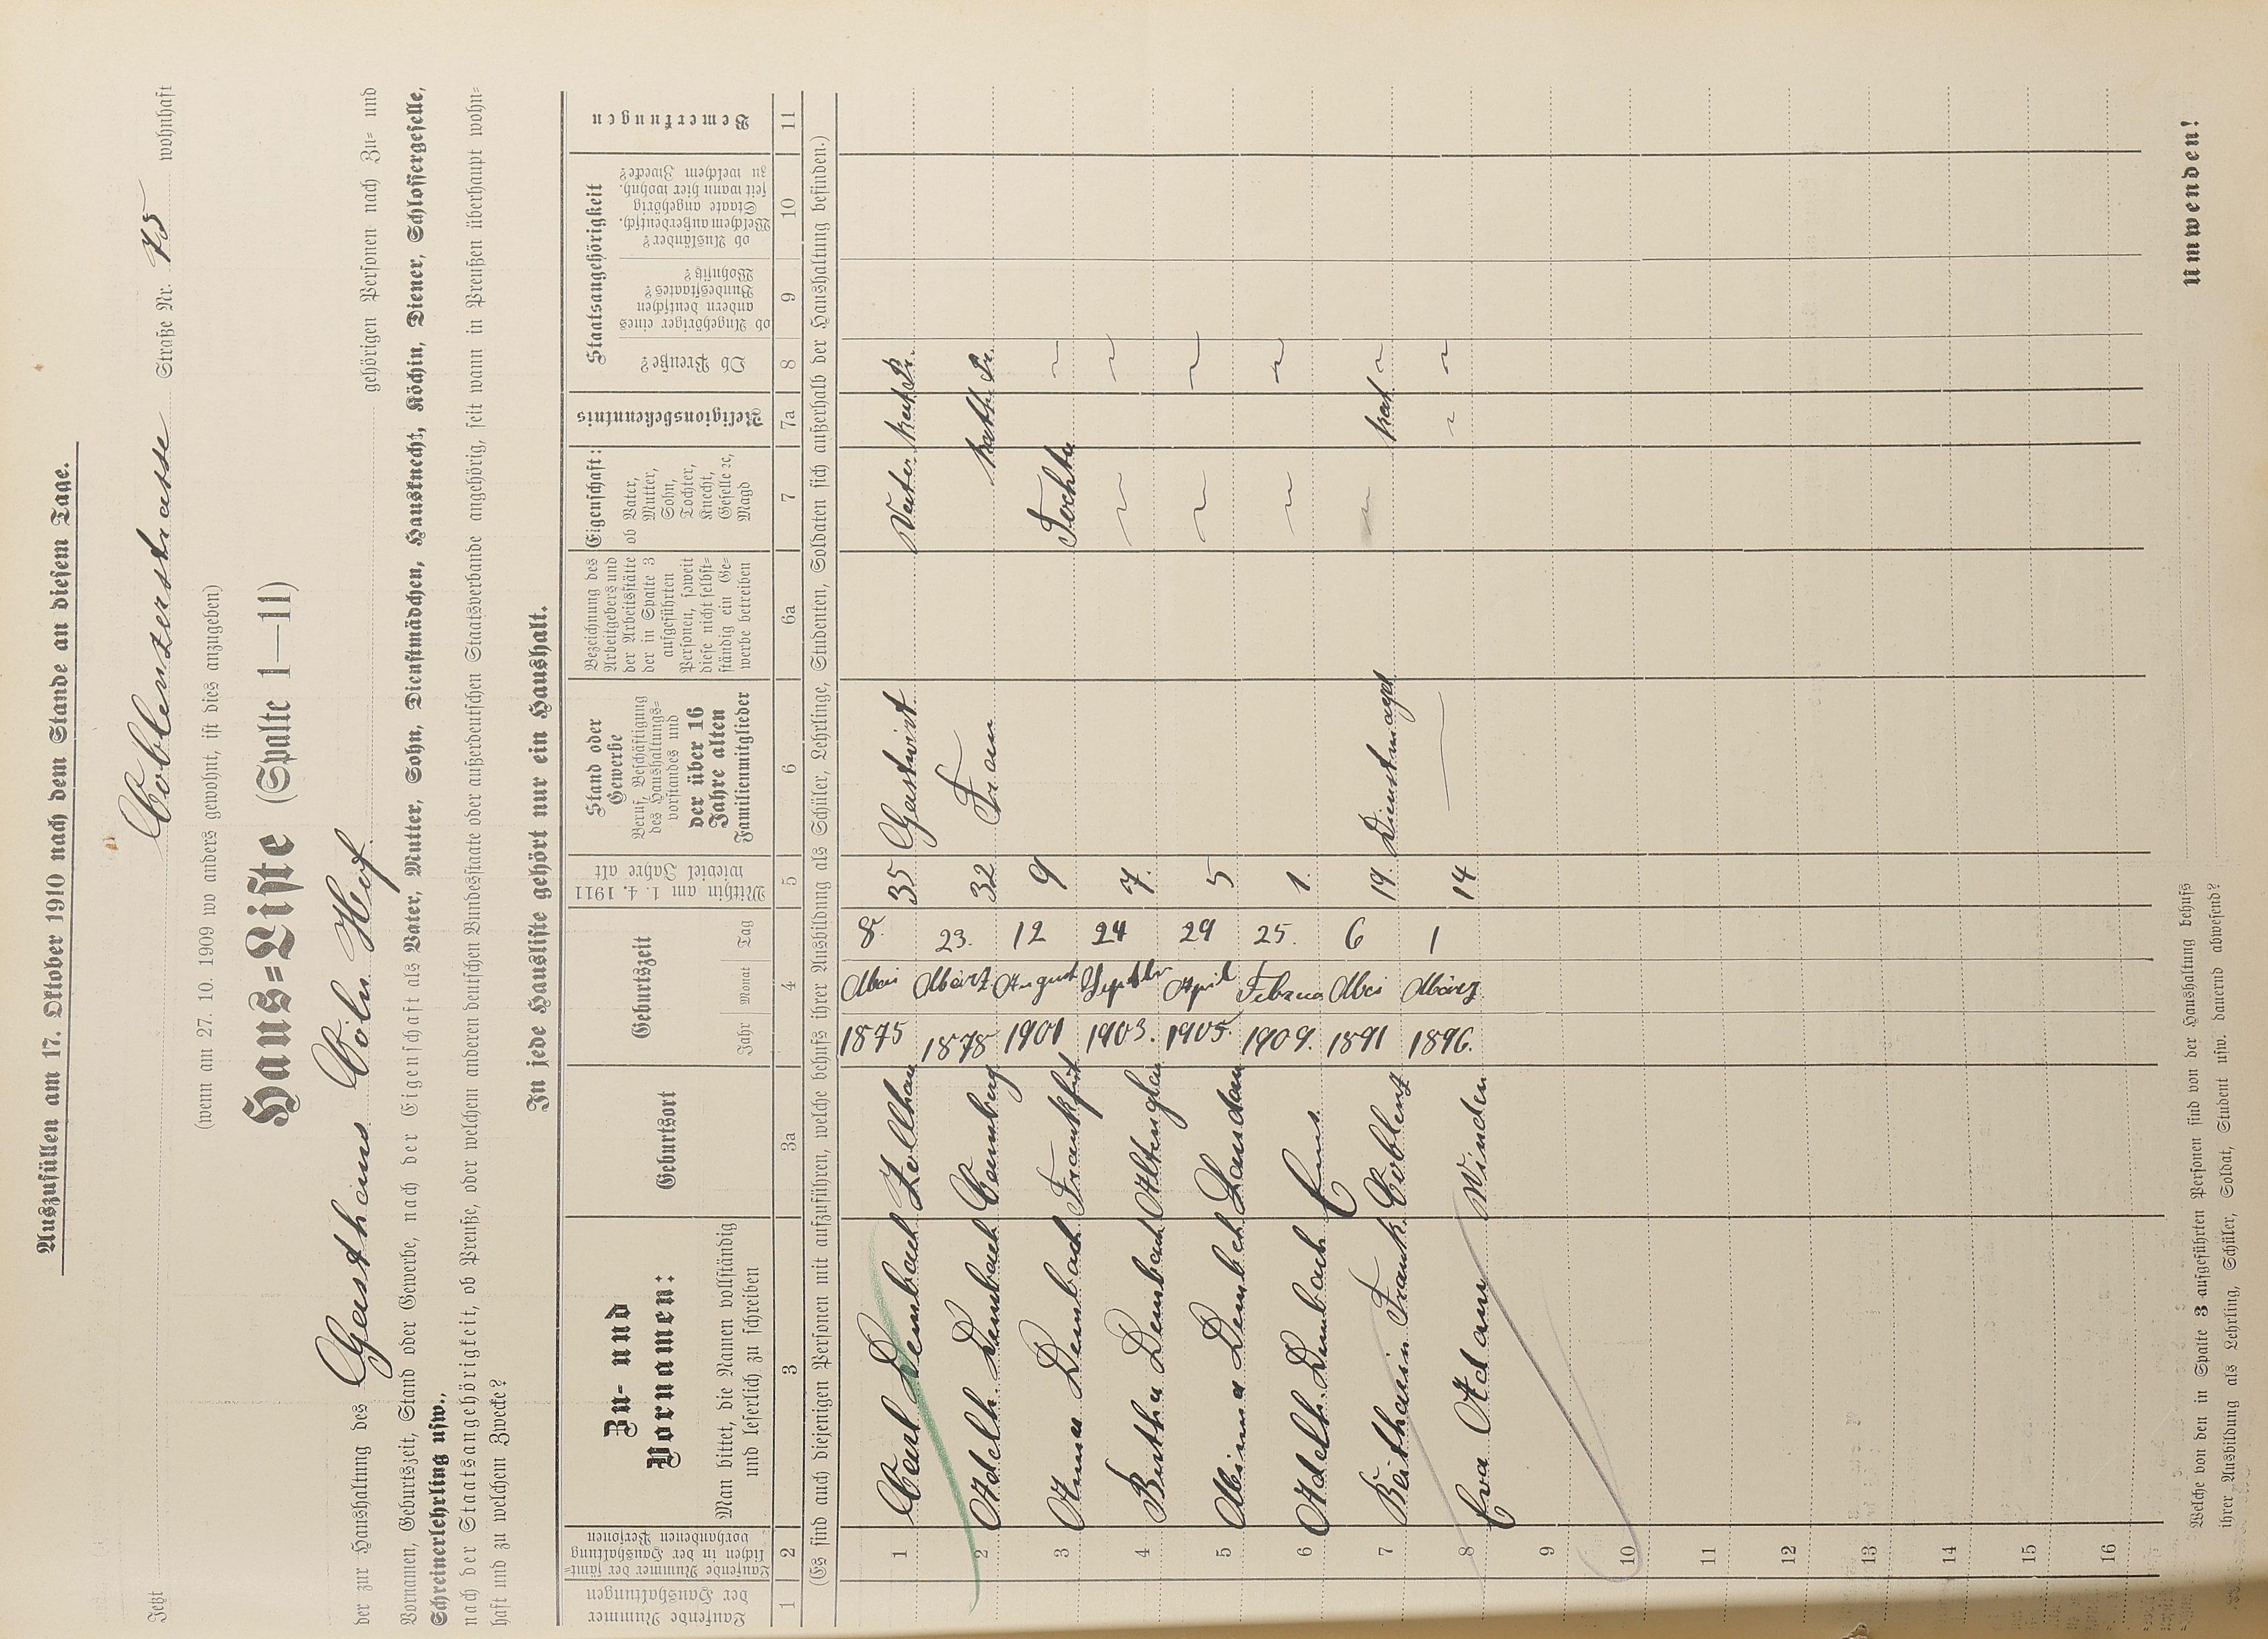 Auszufüllen am 17. Oktober 1910 nach dem Stande an diesem Tage.
Jetzt Coblenzerstrasse Straße Nr. 75 wohnhaft
(wenn am 27. 10. 1909 wo anders gewohnt, ist dies anzugeben)
Haus=Liste (Spalte 1—11)
der zur Haushaltung des Gasthaus Cöln. Hof. gehörigen Personen nach Zu= und
Vornamen, Geburtszeit, Stand oder Gewerbe, nach der Eigenschaft als Vater, Mutter, Sohn, Dienstmädchen, Hausknecht, Köchin, Diener, Schlossergeselle,
Schreinerlehrling usw.,
nach der Staatsangehörigkeit, ob Preuße, oder welchem anderen deutschen Bundesstaate oder außerdeutschen Staatsverbande angehörig, seit wann in Preußen überhaupt wohn=
haft und zu welchem Zwecke?
In jede Hausliste gehört nur ein Haushalt.
Laufende Nummer der Haushaltungen
Laufende Nummer der sämt=lichen in der Haushaltung vorhandenen Personen
Zu- und Vornamen:
Man bittet, die Namen vollständig und leserlich zu schreiben
Geburtsort
Geburtszeit
Jahr Monat Tag
Mithin am 1. 4. 1911 wieviel Jahre alt
Stand oder Gewerbe
Beruf, Beschäftigung des Haushaltungs=vorstandes und der über 16 Jahre alten Familienmitglieder
Bezeichnung des Arbeitgebers und der Arbeitsstätte der in Spalte 3 aufgeführten Personen, soweit diese nicht selbst=ständig ein Ge=werbe betreiben
Eigenschaft:
ob Vater, Mutter, Sohn, Tochter, Knecht, Geselle ꝛc, Magd
Religionsbekenntnis
Staatsangehörigkeit
Ob Preuße?
ob Angehöriger eines andern deutschen Bundesstaates? Wohnsitz?
ob Ausländer? Welchem außerdeutsch. Staate angehörig seit wann hier wohnh. zu welchem Zwecke?
Bemerkungen
1 2 3 3a 4 5 6 6a 7 7a 8 9 10 11
(Es sind auch diejenigen Personen mit aufzuführen, welche behufs ihrer Ausbildung als Schüler, Lehrlinge, Studenten, Soldaten sich außerhalb der Haushaltung befinden.)
1 Carl Dembach Zollhau 1875 Mai 8. 35 Gastwirt Vater kath Pr.
2 Adelh. Dembach Camberg 1878 März. 23. 32 Frau kath Pr.
3 Anna Dembach Frankfurt 1901 August 12 9 Tochter ~
4 Bertha Dembach Altenglan 1903. Septbr 24 7. ~ ~
5 Minna Dembach Landau 1905. April 29 5 ~ ~
6 Adelh. Dembach Ems. 1909. Februar 25. 1. ~ ~
7 Frank. Coblenz 1891 Mai 6 19. Dienstmagd ~ kat ~
8 Eva Adam Winden 1896. März 1 14 — ~ ~
9
10
11
12
13
14
15
16
Welche von den in Spalte 3 aufgeführten Personen sind von der Haushaltung behufs
ihrer Ausbildung als Lehrling, Schüler, Soldat, Student usw. dauernd abwesend?
Umwenden!